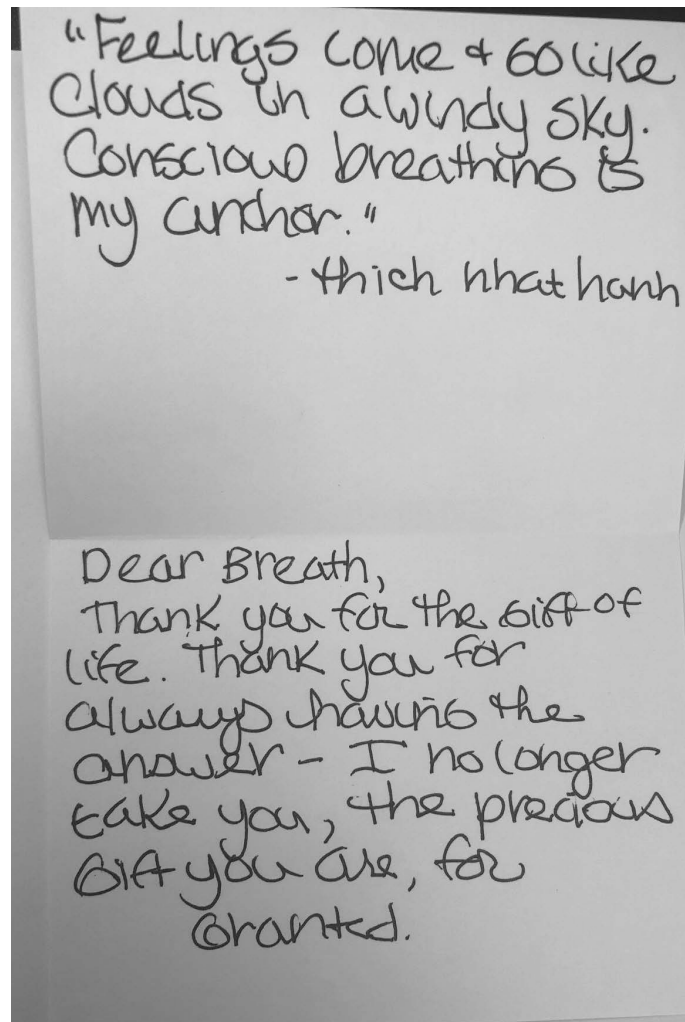 "Feelings come & Go like
Clouds in a windy sky.
Conscious breathing is
my anchor."
- thich nhat hanh
Dear Breath,
Thank you for the Gift of
life. Thank you for
always having the
answer - I no longer
take you, the precious
Gift you are, for
Granted.